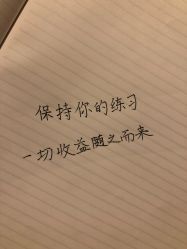 保持你的练习
一切收益随之而来